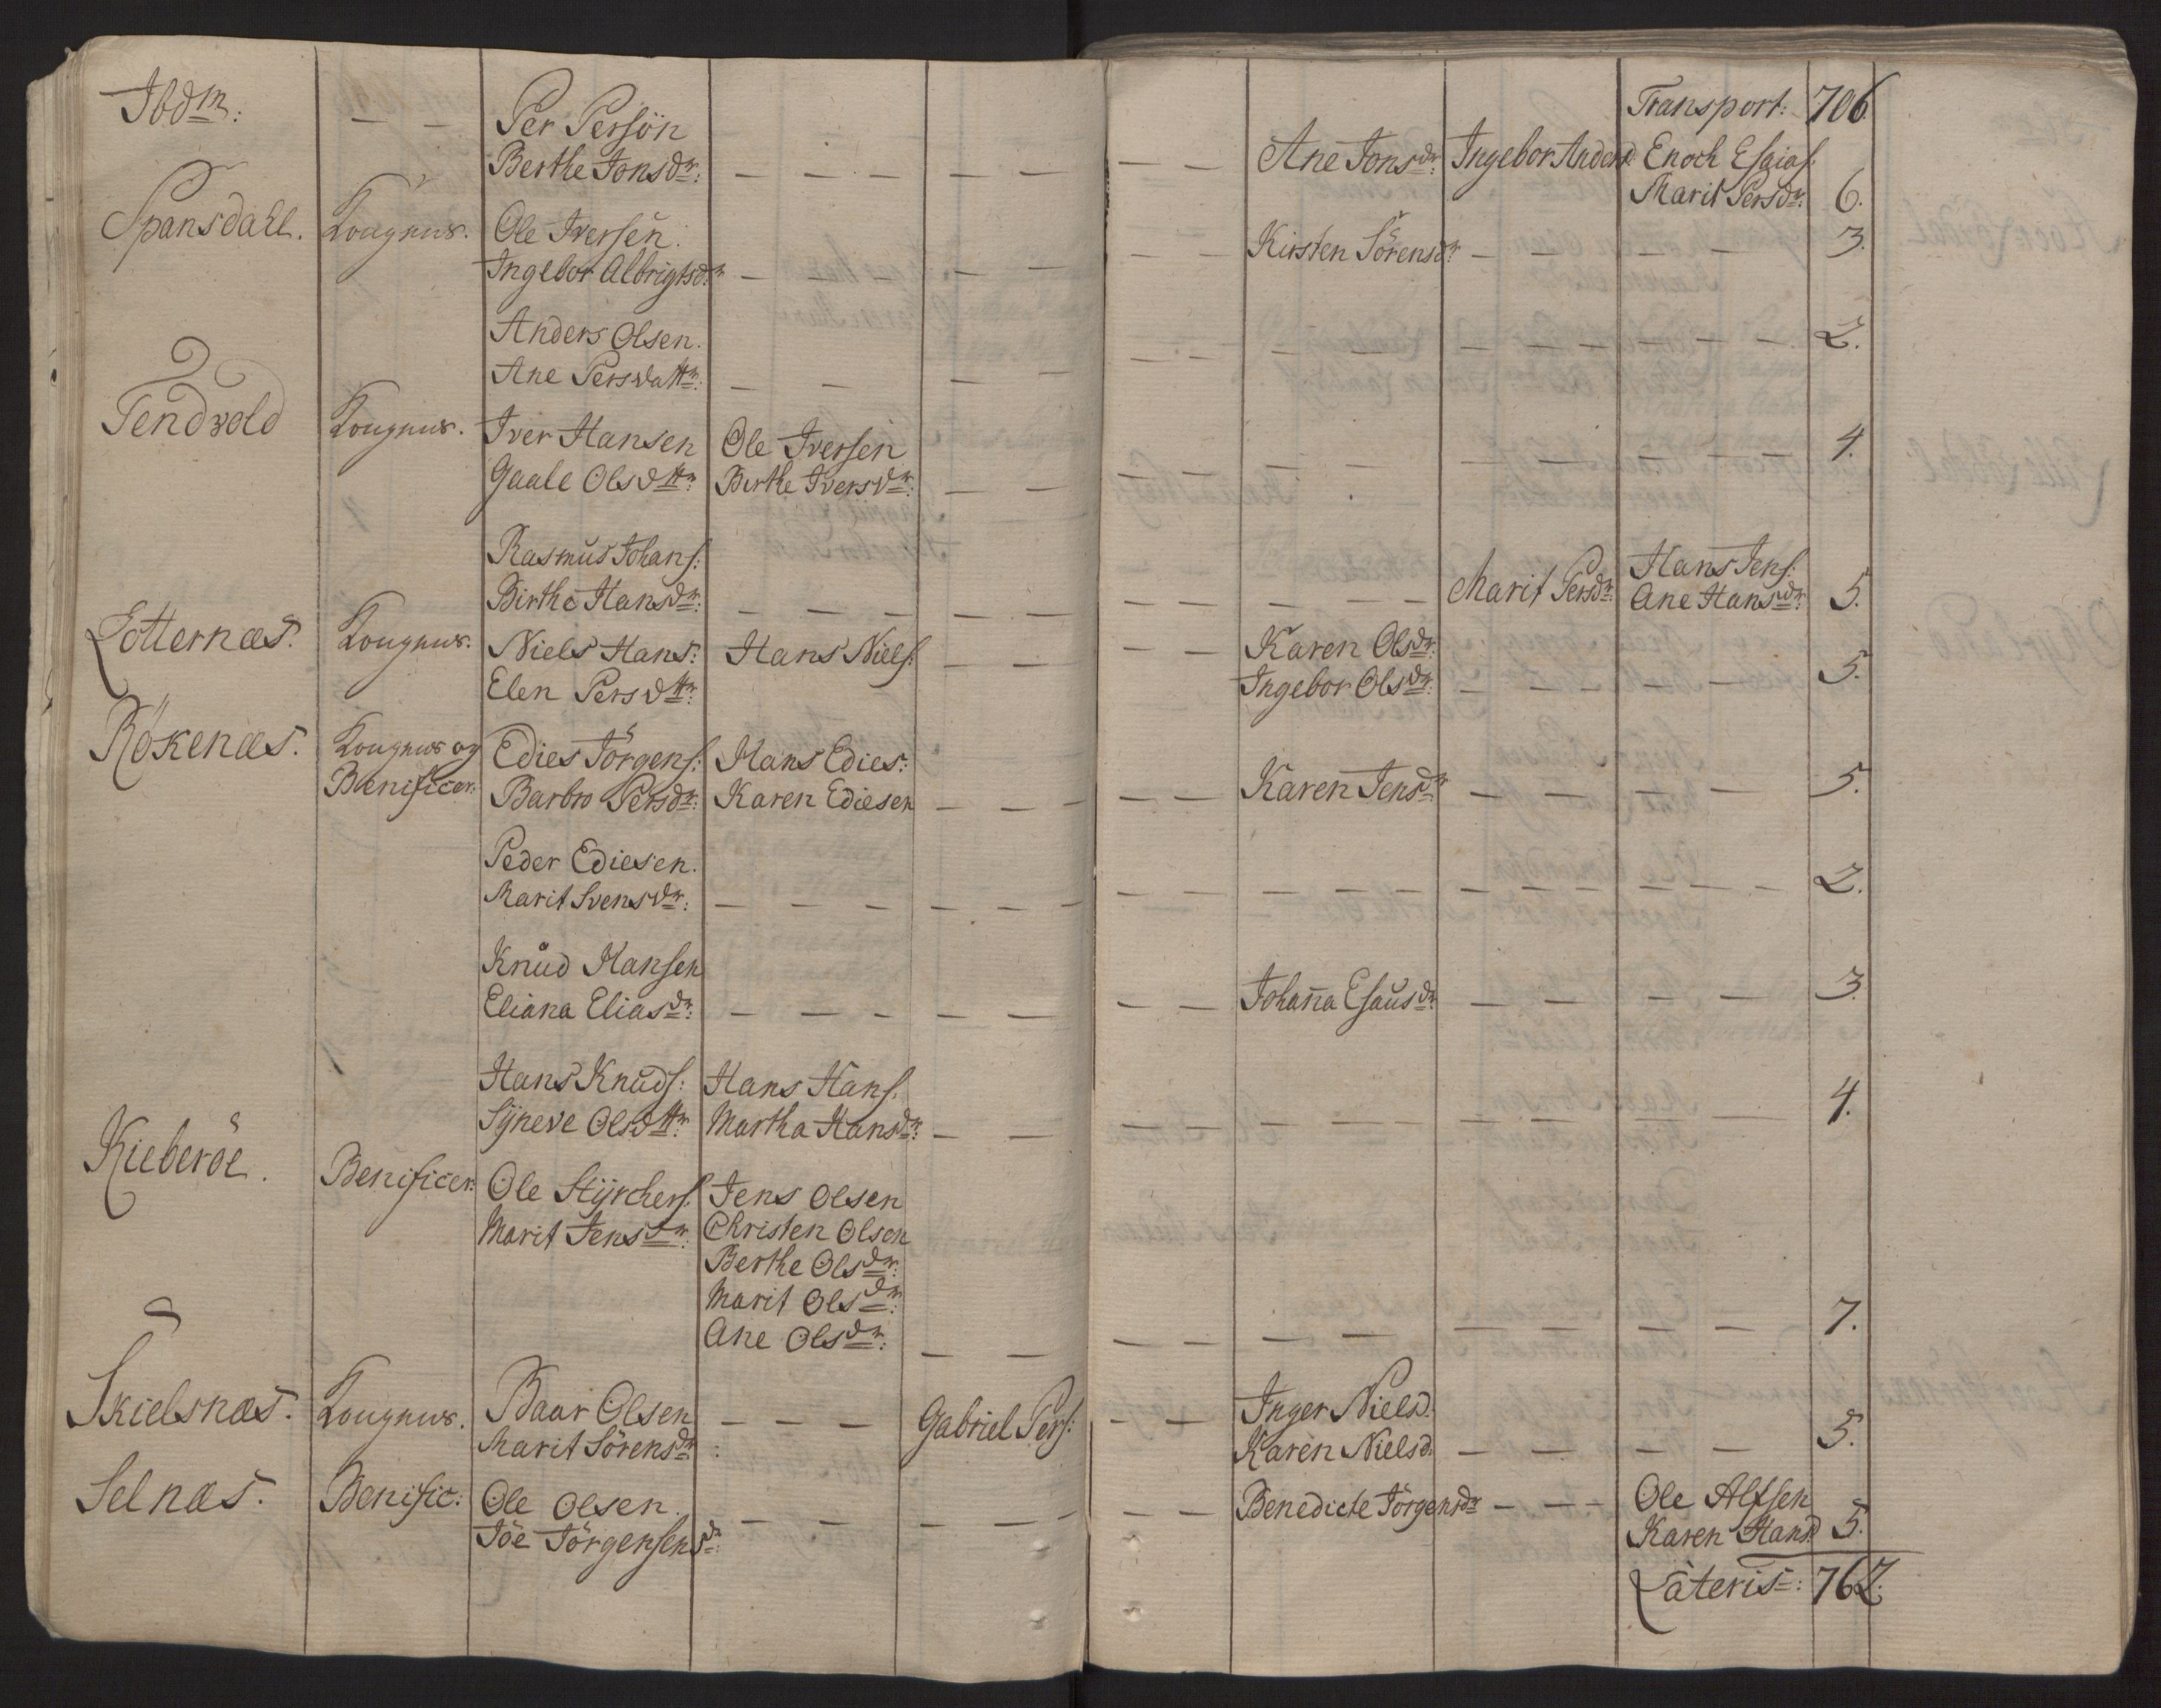 Transport: 706.
Ibdm: — — Per Persön
Berthe Jonsdr: — — — — — — — Ane Jonsdr: Ingebor Andersd: Enoch Esaias:
Marit Persdr: 6.
Spansdall. Kongens. Ole Iversen.
Ingebor Albrigtsdr — — — — — — — Kirsten Sörensdr — — — — 3.
Anders Olsen.
Ane Persdattr: — — — — — — — — — — — — 2.
Tendvold Kongens. Iver Hansen Ole Iversen
Gaale Olsdttr: Birthe Iversdr: — — — — — — — — — — 4.
Rasmus Johans:
Birthe Hansdr: — — — — — — — — — — Marit Persdr: Hans Jens:
Ane Hansdr: 5.
Lotternæs. Kongens. Niels Hans: Hans Niels: — — — — Karen Olsdr:
Elen Persdttr: Ingebor Olsdr: — — — — 5.
Rökenæs. Kongens og Edies Jörgens: Hans Edies:
Benificer: Barbro Persdr: Karen Ediesen — — — — — Karen Jensdr — — — — 5.
Peder Ediesen.
Marit Svensdr: — — — — — — — — — — — — — — 2.
Knud Hansen
Eliana Eliasdr: — — — — — — — Johanna Esausdr: — — — — 3.
Hans Knuds: Hans Hans:
Syneve Olsdttr: Martha Hansdr: — — — — — — — — — — 4.
Kieberöe. Benificer: Ole Styrchers: Jens Olsen
Marit Jensdr: Christen Olsen
Berthe Olsdr:
Marit Olsdr:
Ane Olsdr: — — — — — — — — — — 7.
Skielsnæs. Kongens. Baar Olsen — — — Gabriel Pers: — — Inger Nielsd.
Marit Sörensdr: Karen Nielsd. — — — — 5.
Selnæs. Benific: Ole Olsen. — — — — — — — Benedicte Jörgensdr — — — Ole Alfsen
Jöe Jörgensensdr: Karen Hansd 5.
Lateris: 762.